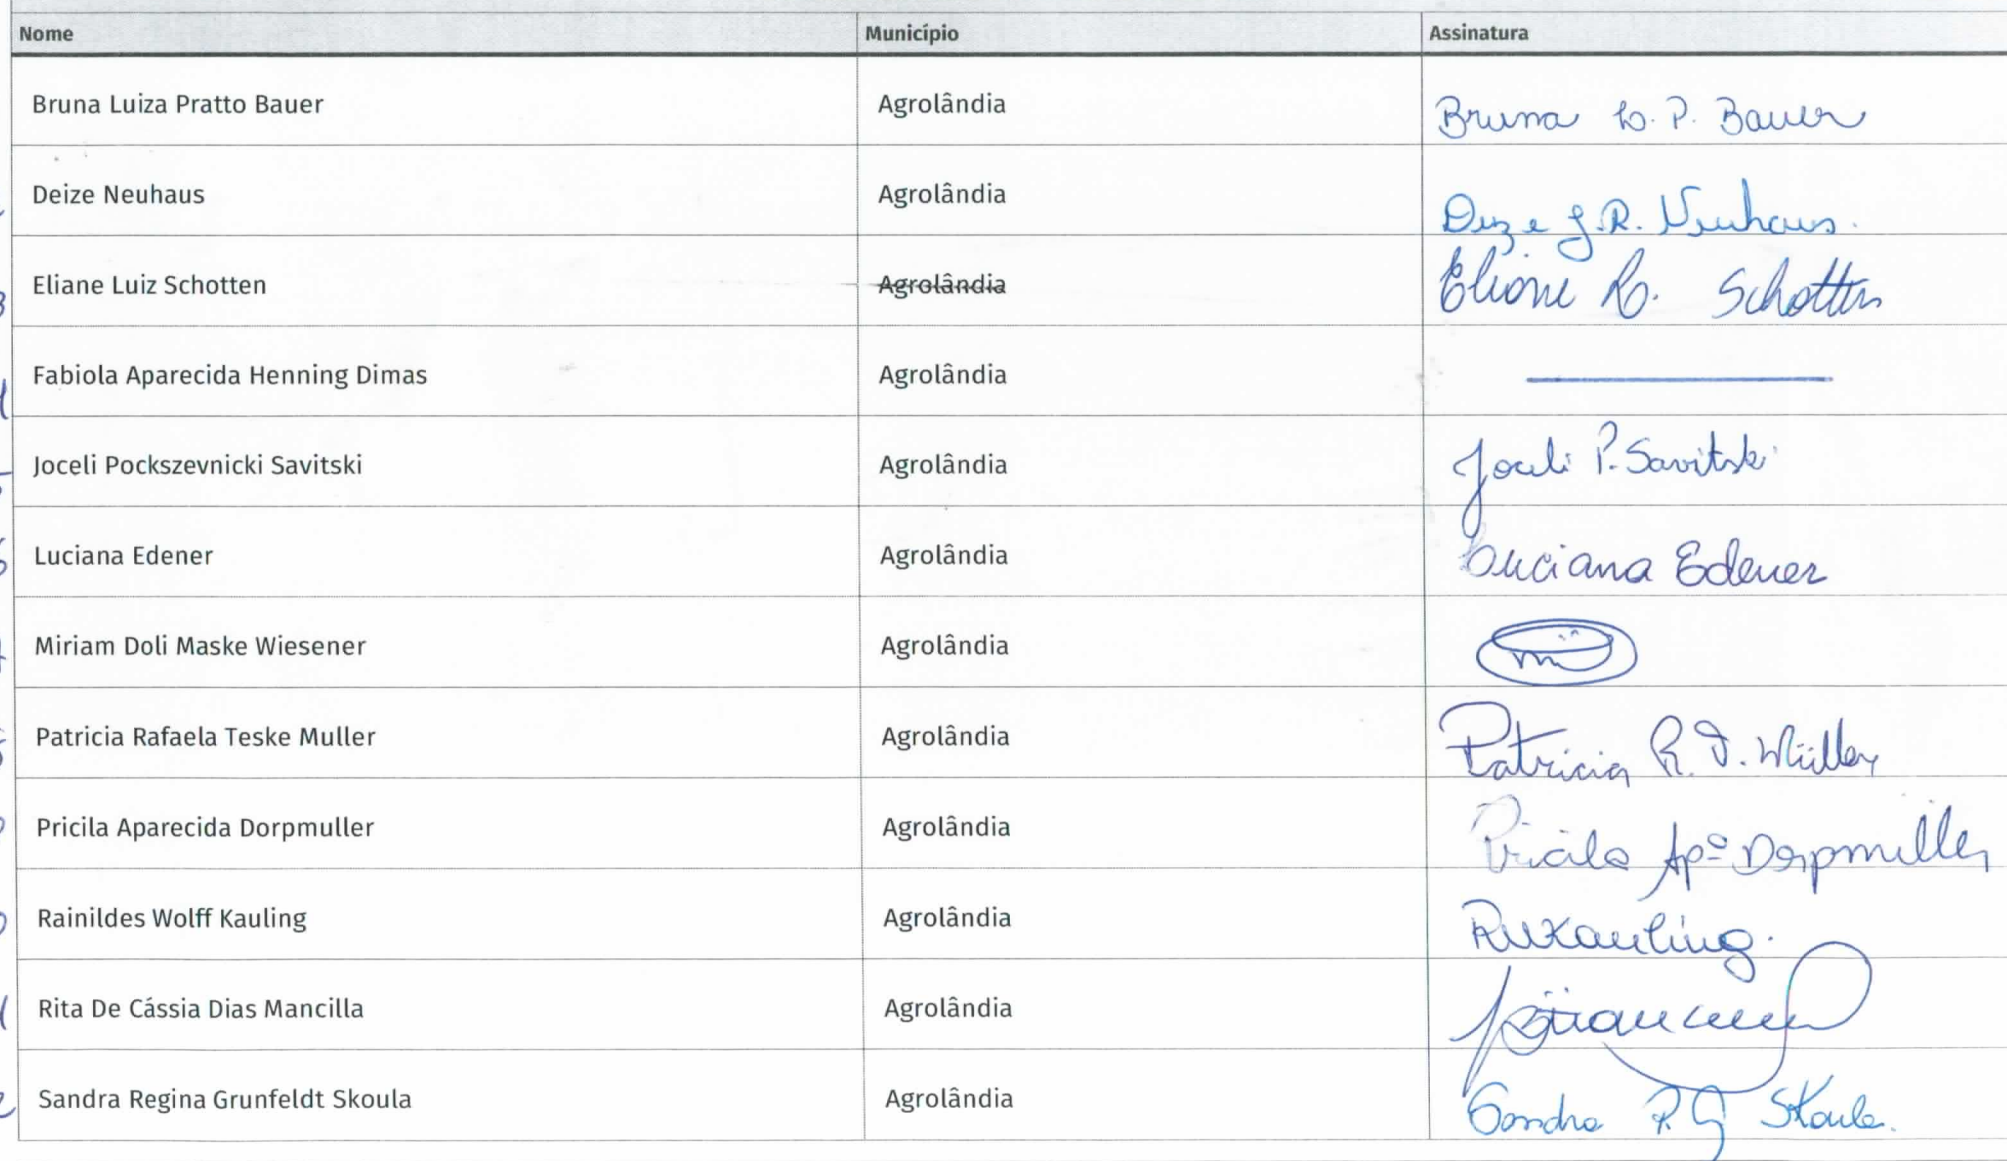 Nome Município Assinatura
Bruna Luiza Pratto Bauer Agrolândia Bruna L. P. Bauer
Deize Neuhaus Agrolândia Deize J.R. Neuhaus.
Eliane Luiz Schotten Agrolândia Eliane L. Schotten
Fabiola Aparecida Henning Dimas Agrolândia
Joceli Pockszevnicki Savitski Agrolândia Joceli P. Savitski
Luciana Edener Agrolândia Luciana Edener
Miriam Doli Maske Wiesener Agrolândia
Patricia Rafaela Teske Muller Agrolândia Patricia R. T. Müller
Pricila Aparecida Dorpmuller Agrolândia Pricila Apª Dorpmuller
Rainildes Wolff Kauling Agrolândia RWKauling.
Rita De Cássia Dias Mancilla Agrolândia
Sandra Regina Grunfeldt Skoula Agrolândia Sandra R. G Skoula.